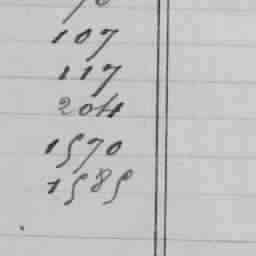 107
117
204
1570
1585